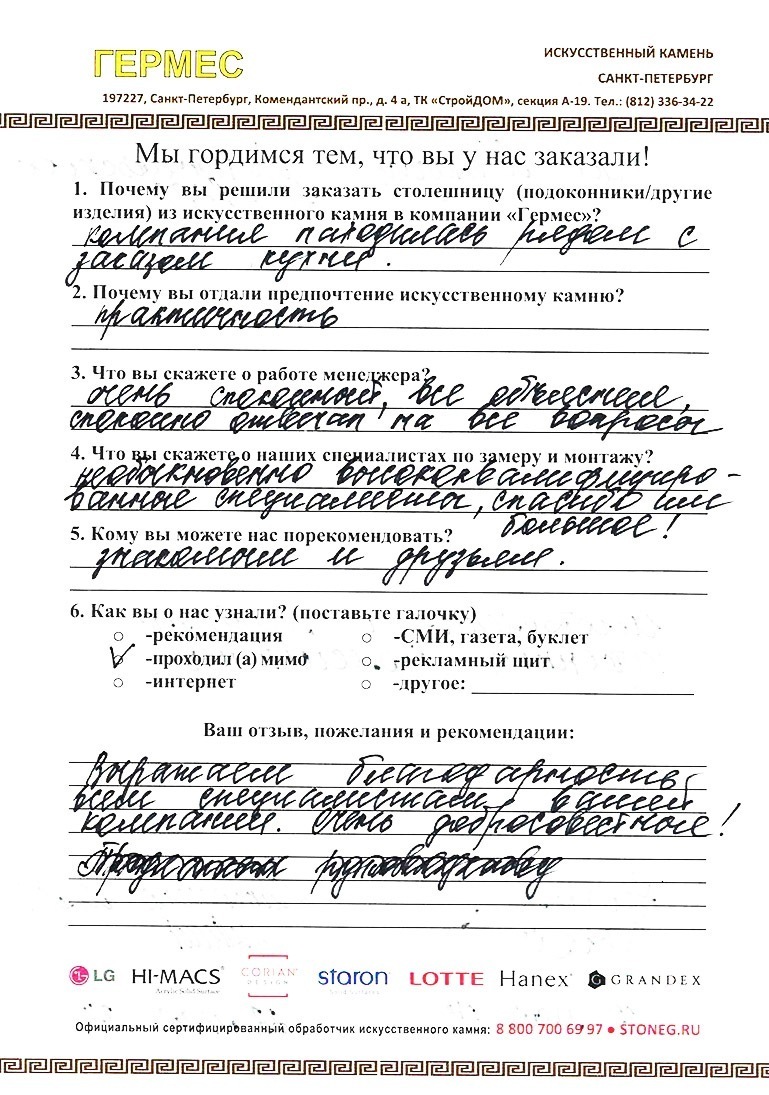 ГЕРМЕС
ИСКУССТВЕННЫЙ КАМЕНЬ
САНКТ-ПЕТЕРБУРГ
197227, Санкт-Петербург, Комендантский пр., д. 4 а, ТК «СтройДОМ», секция А-19. Тел.: (812) 336-34-22
Мы гордимся тем, что вы у нас заказали!
1. Почему вы решили заказать столешницу (подоконники/другие
изделия) из искусственного камня в компании «Гермес»?
компания находилась рядом с
заказом кухни.
2. Почему вы отдали предпочтение искусственному камню?
практичность
3. Что вы скажете о работе менеджера?
очень спокойный, все объяснил,
спокойно отвечал на все вопросы
4. Что вы скажете о наших специалистах по замеру и монтажу?
необыкновенно высококвалифициро-
ванные специалисты, спасибо им
большое!
5. Кому вы можете нас порекомендовать?
знакомым и друзьям.
6. Как вы о нас узнали? (поставьте галочку)
-рекомендация -СМИ, газета, буклет
-проходил (а) мимо -рекламный щит
-интернет -другое:
Ваш отзыв, пожелания и рекомендации:
Выражаем благодарность
всем специалистам вашей
компании. Очень добросовестные!
LG HI-MACS CORIAN DESIGN staron LOTTE Hanex GRANDEX
Официальный сертифицированный обработчик искусственного камня: 8 800 700 69 97 • STONEG.RU